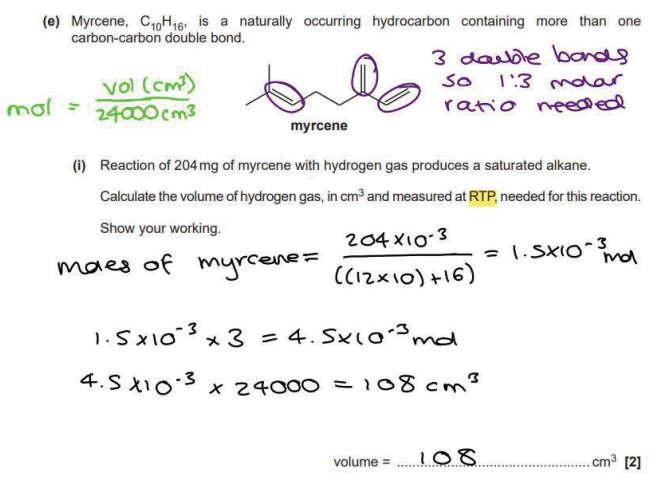 (e) Myrcene, C₁₀H₁₆, is a naturally occurring hydrocarbon containing more than one
carbon-carbon double bond.
mol = vol (cm³) / 24000cm³
3 double bonds
so 1:3 molar
ratio needed
myrcene
(i) Reaction of 204 mg of myrcene with hydrogen gas produces a saturated alkane.
Calculate the volume of hydrogen gas, in cm³ and measured at RTP, needed for this reaction.
Show your working.
moles of myrcene = 204 × 10⁻³ / ((12×10)+16) = 1.5×10⁻³ mol
1.5×10⁻³ × 3 = 4.5×10⁻³ mol
4.5×10⁻³ × 24000 = 108 cm³
volume = ......108...... cm³ [2]